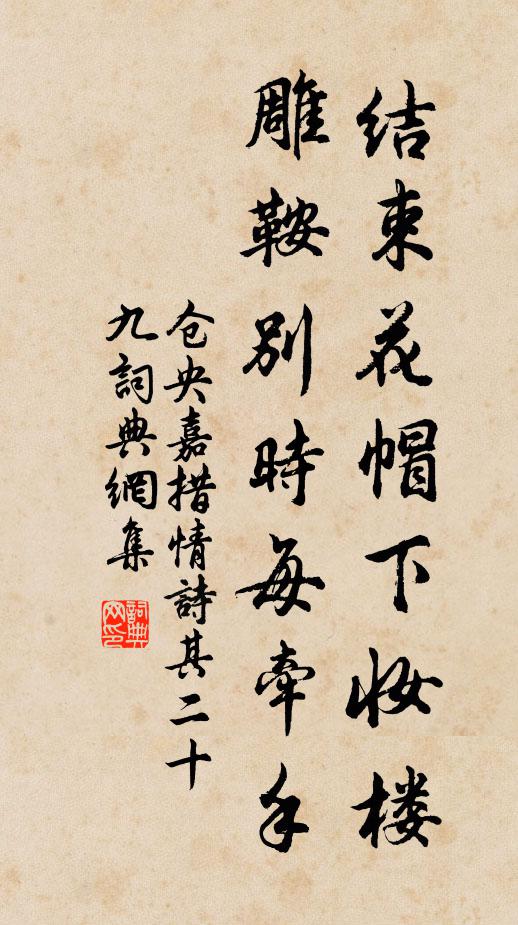 结束花帽下妆楼
雕鞍别時每牵手
仓央嘉措情詩其二十
九詞典網集
詞典网印